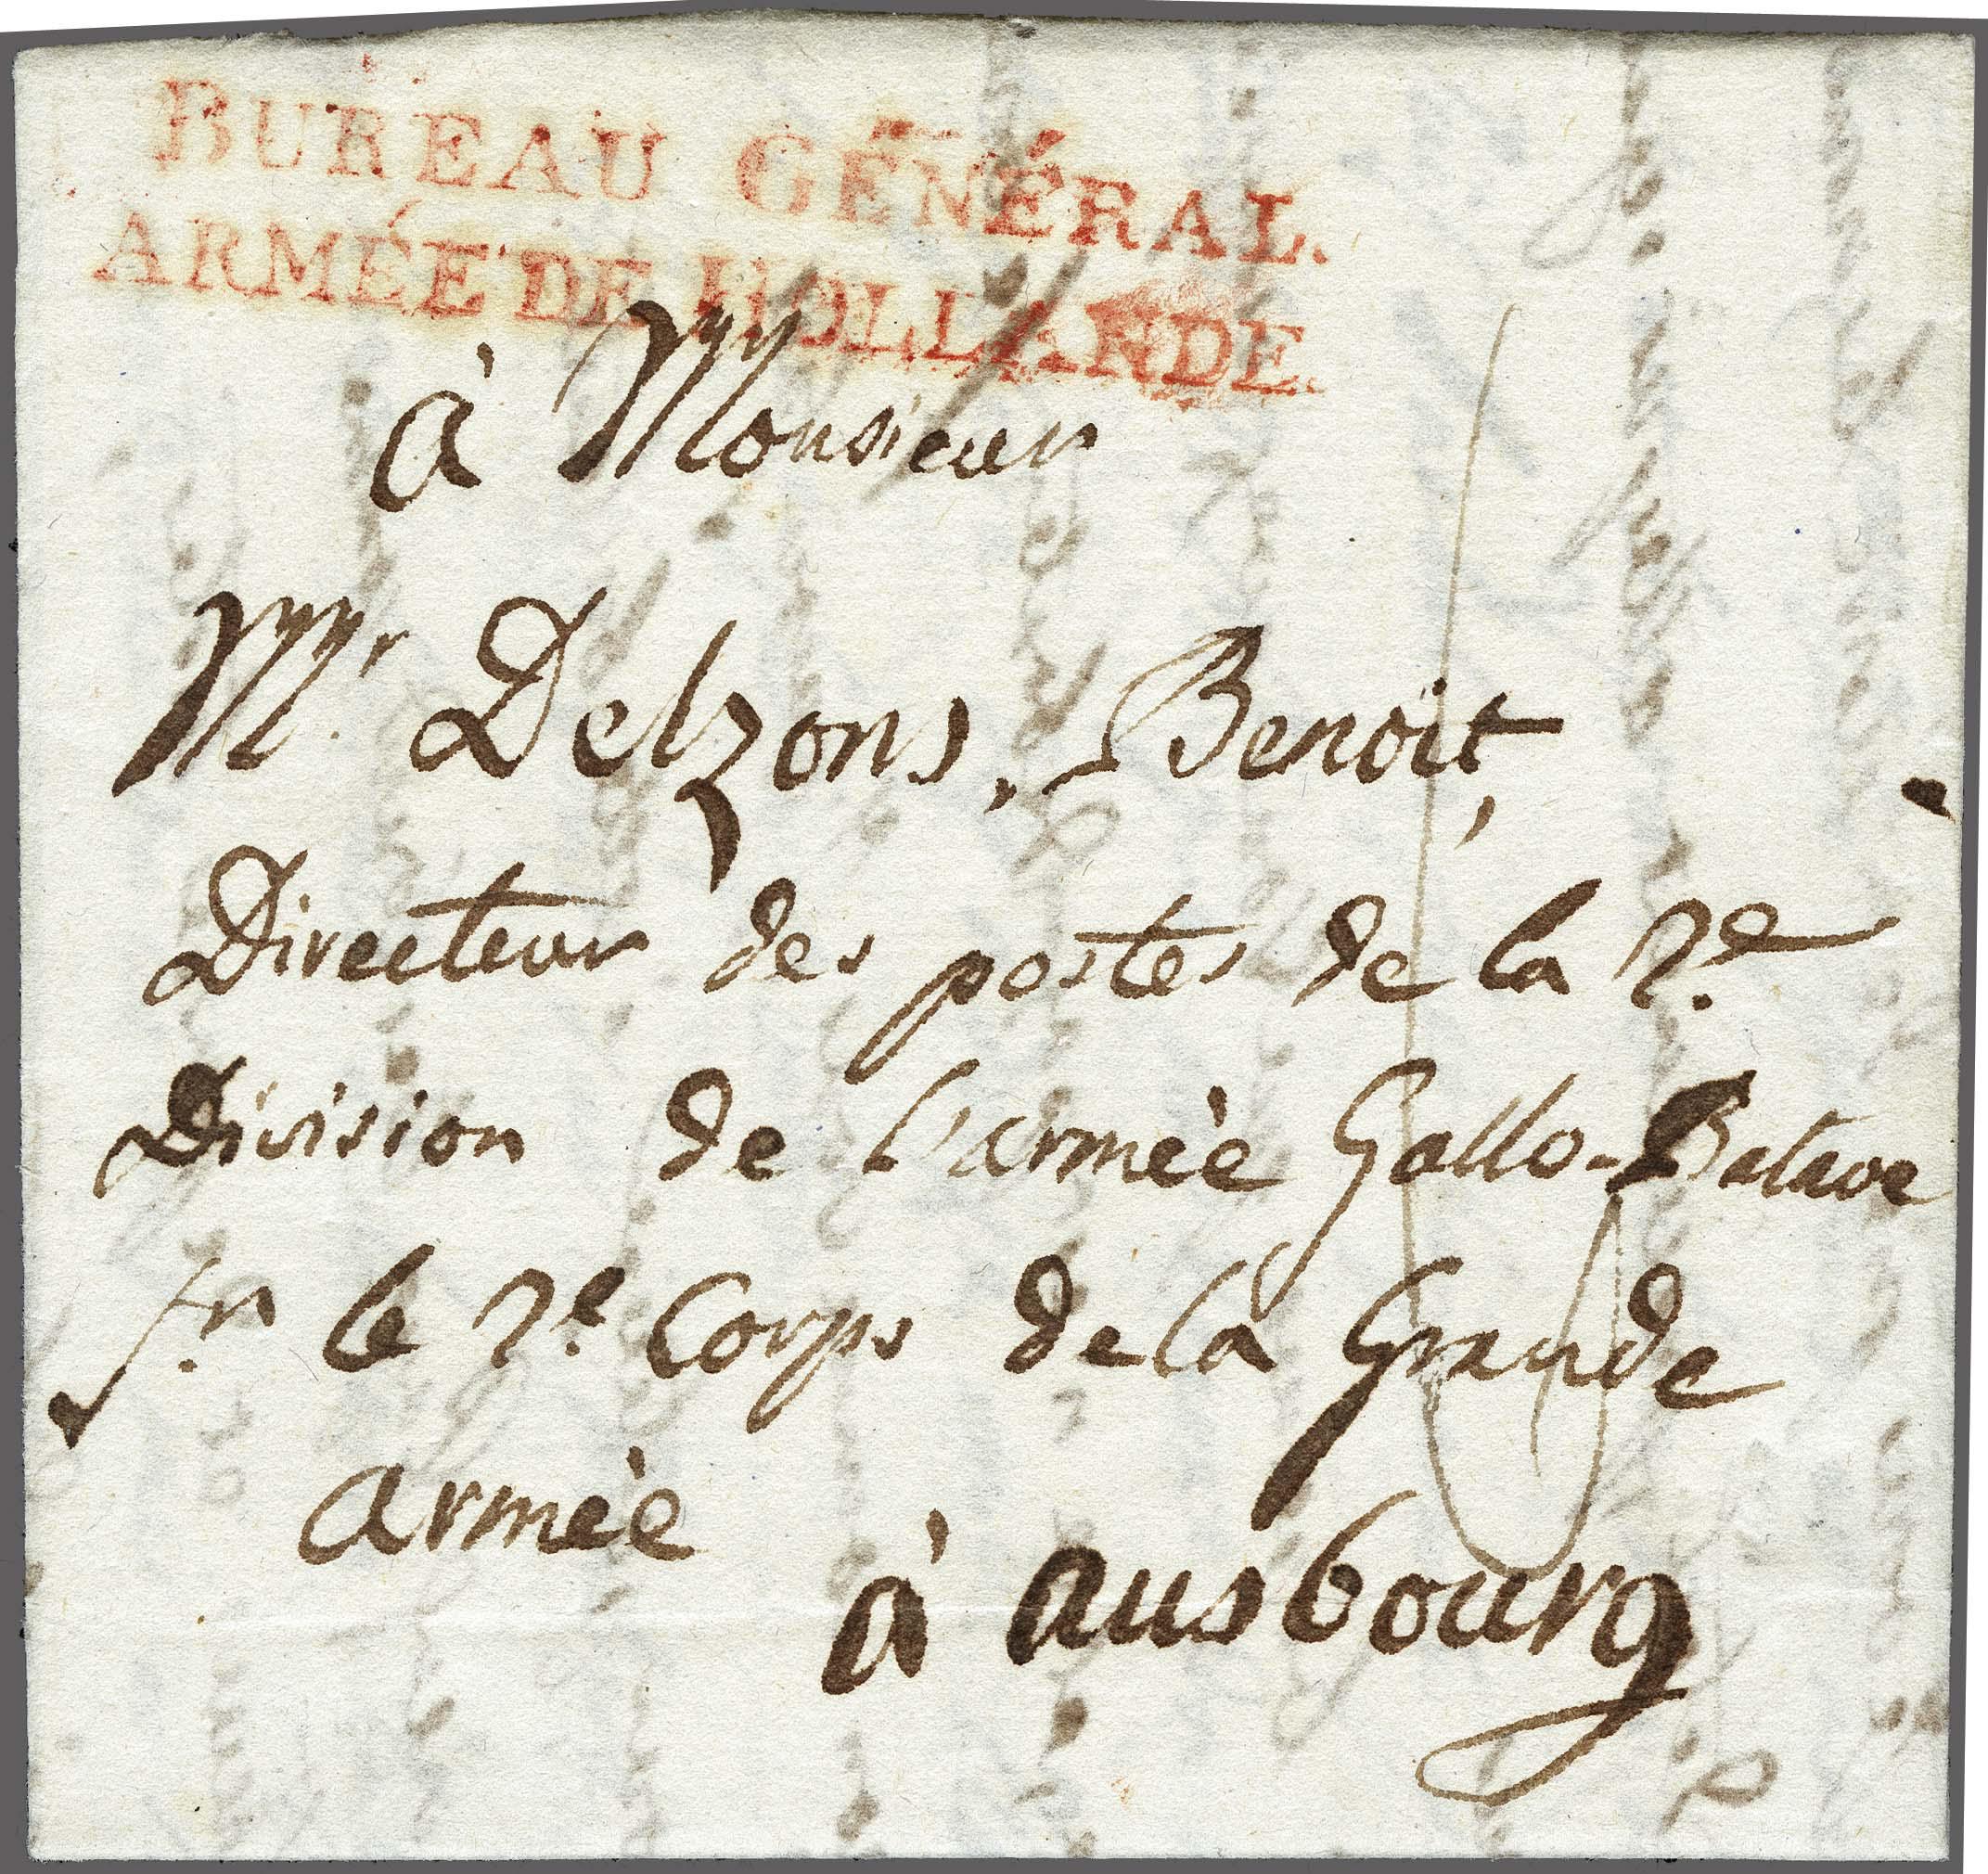 BUREAU GÉNÉRAL.
ARMÉE DE HOLLANDE.
à Monsieur
Mr. Delzons, Benoit,
Directeur des postes de la 2.e
Division de l'armèe Gallo-Batave
le 2.e Corps de la Grande
armèe
à ausbourg